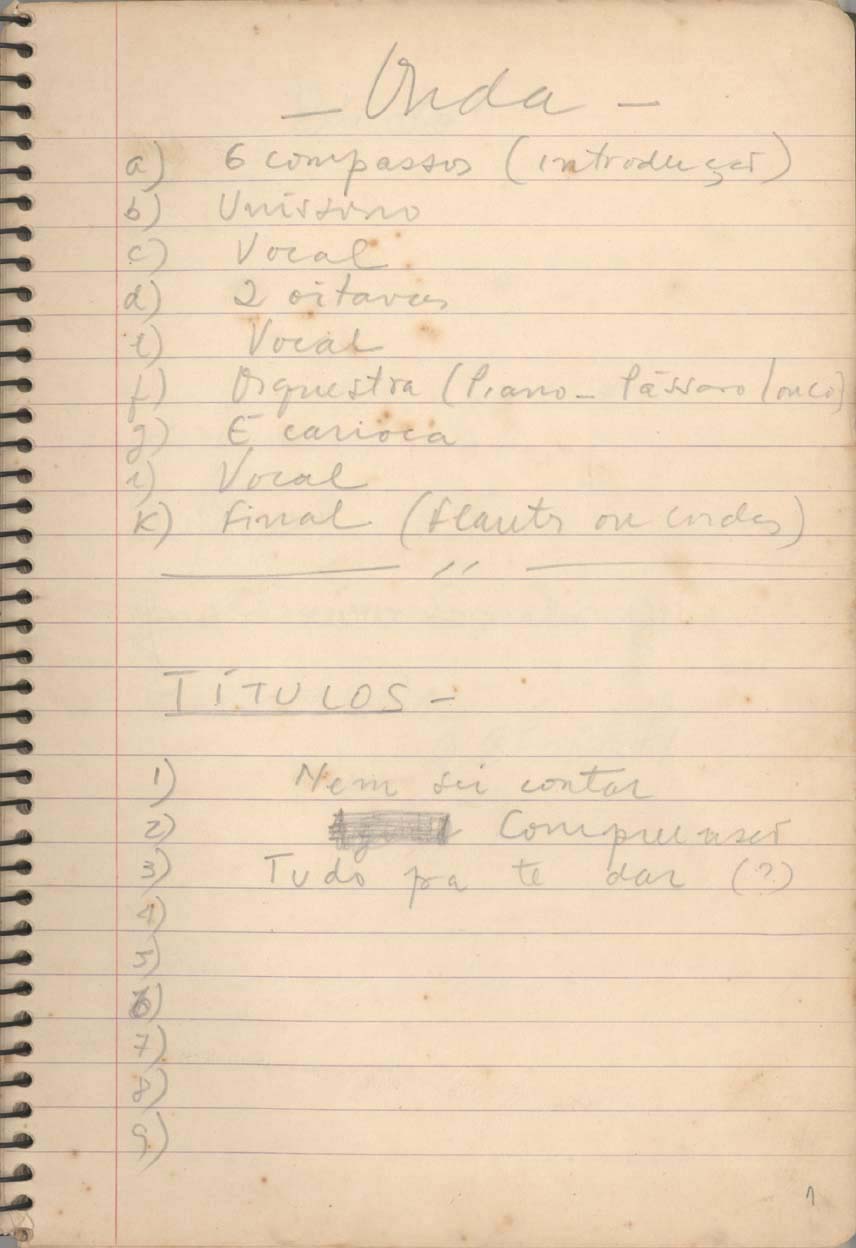 — Onda —
a) 6 compassos (introdução)
b) Uníssono
c) Vocal
d) 2 oitavas
e) Vocal
f) Orquestra (Piano — Pássaro louco)
g) É carioca
i) Vocal
k) Final (flauts ou cordas)
——— " ———
TÍTULOS —
1) Nem sei contar
2) Compreensão
3) Tudo pra te dar (?)
4)
5)
6)
7)
8)
9)
1